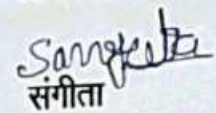 Sangeeta
संगीता